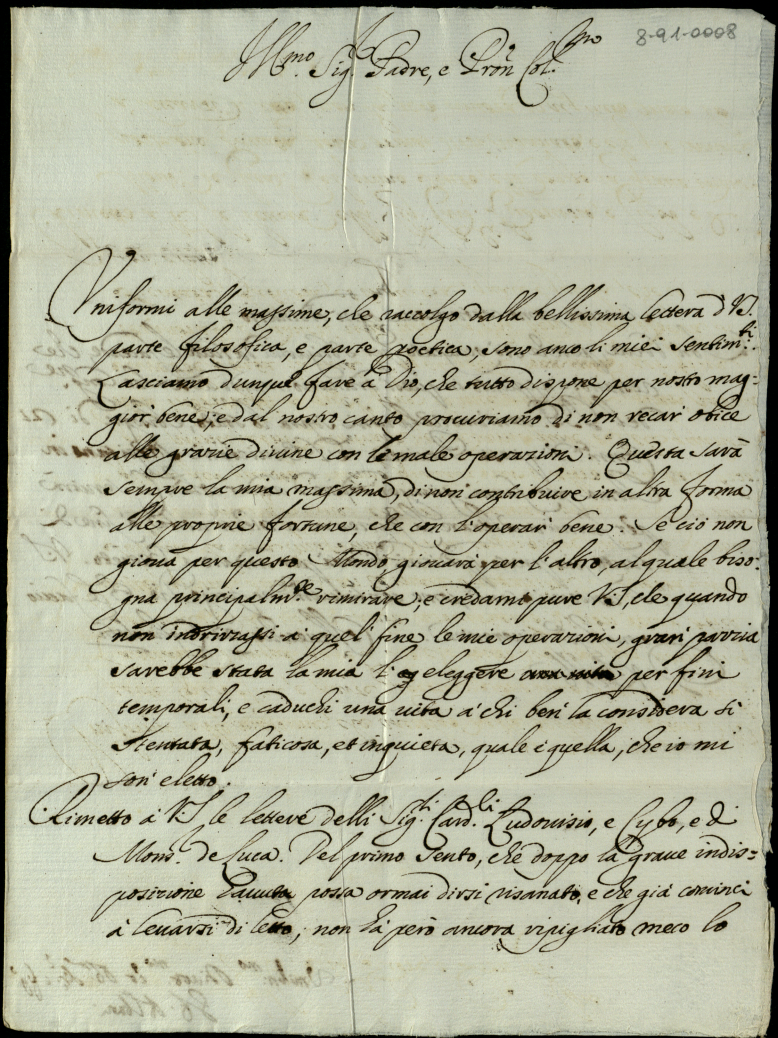 8-91-0008
Ill.mo Sig.r Padre, e Pron Col.mo
Uniformi alle massime, che raccolgo dalla bellissima lettera di V.S.
parte filosofica, e parte poetica, sono anco li miei sentim.ti.
Lasciamo dunque fare à Dio, che tutto dispone per nostro mag-
gior bene, e dal nostro canto procuriamo di non recar obice
alle grazie divine con le male operazioni. Questa sarà
sempre la mia massima, di non contribuire in altra forma
alle proprie fortune, che con l'operar bene. Se ciò non
gioua per questo Mondo, giouarà per l'altro, al quale biso-
gna principalm.te rimirare, e credami pure V.S., che quando
non indrizzassi à quel fine le mie operazioni, gran pazzia
sarebbe stata la mia l' eleggere per fini
temporali, e caduchi una uita à chi ben la considera sì
stentata, faticosa, et inquieta, quale è quella, che io mi
son eletto.
Rimetto à V.S. le lettere delli Sig.ri Card.li Ludouisio, e Cybo, e di
Mons.r de Luca. Del primo sento, che doppo la graue indis=
posizione hauuta possa ormai dirsi risanato, e che già cominci
à leuarsi di letto, non hà però ancora ripigliato meco lo